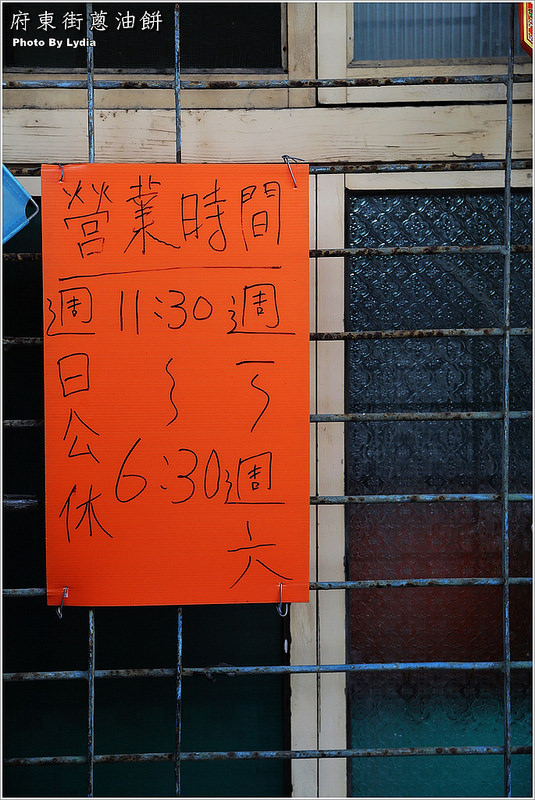 府東街蔥油餅
Photo By Lydia
營業時間
週一～週六
11:30～6:30
週日公休